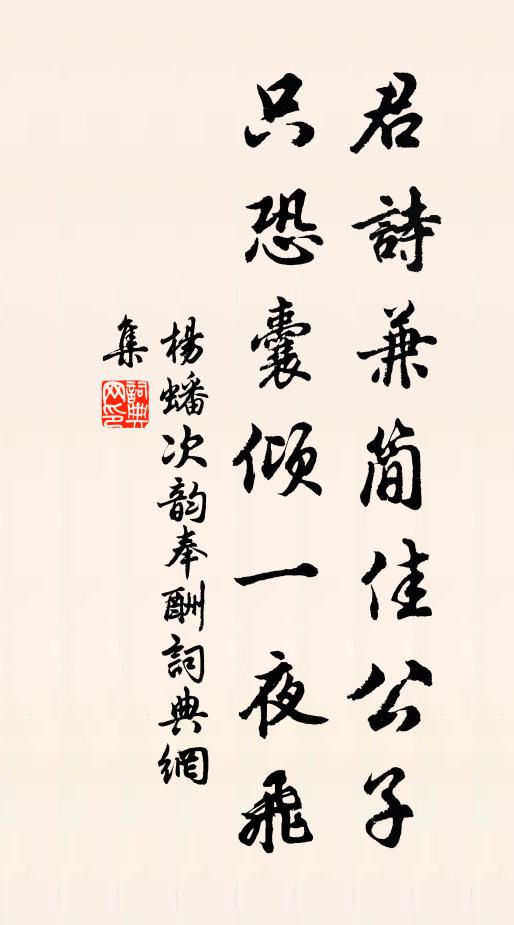 君詩兼簡佳公子
只恐囊傾一夜飛
楊蟠次韵奉酬詞典網
集
詞典網印